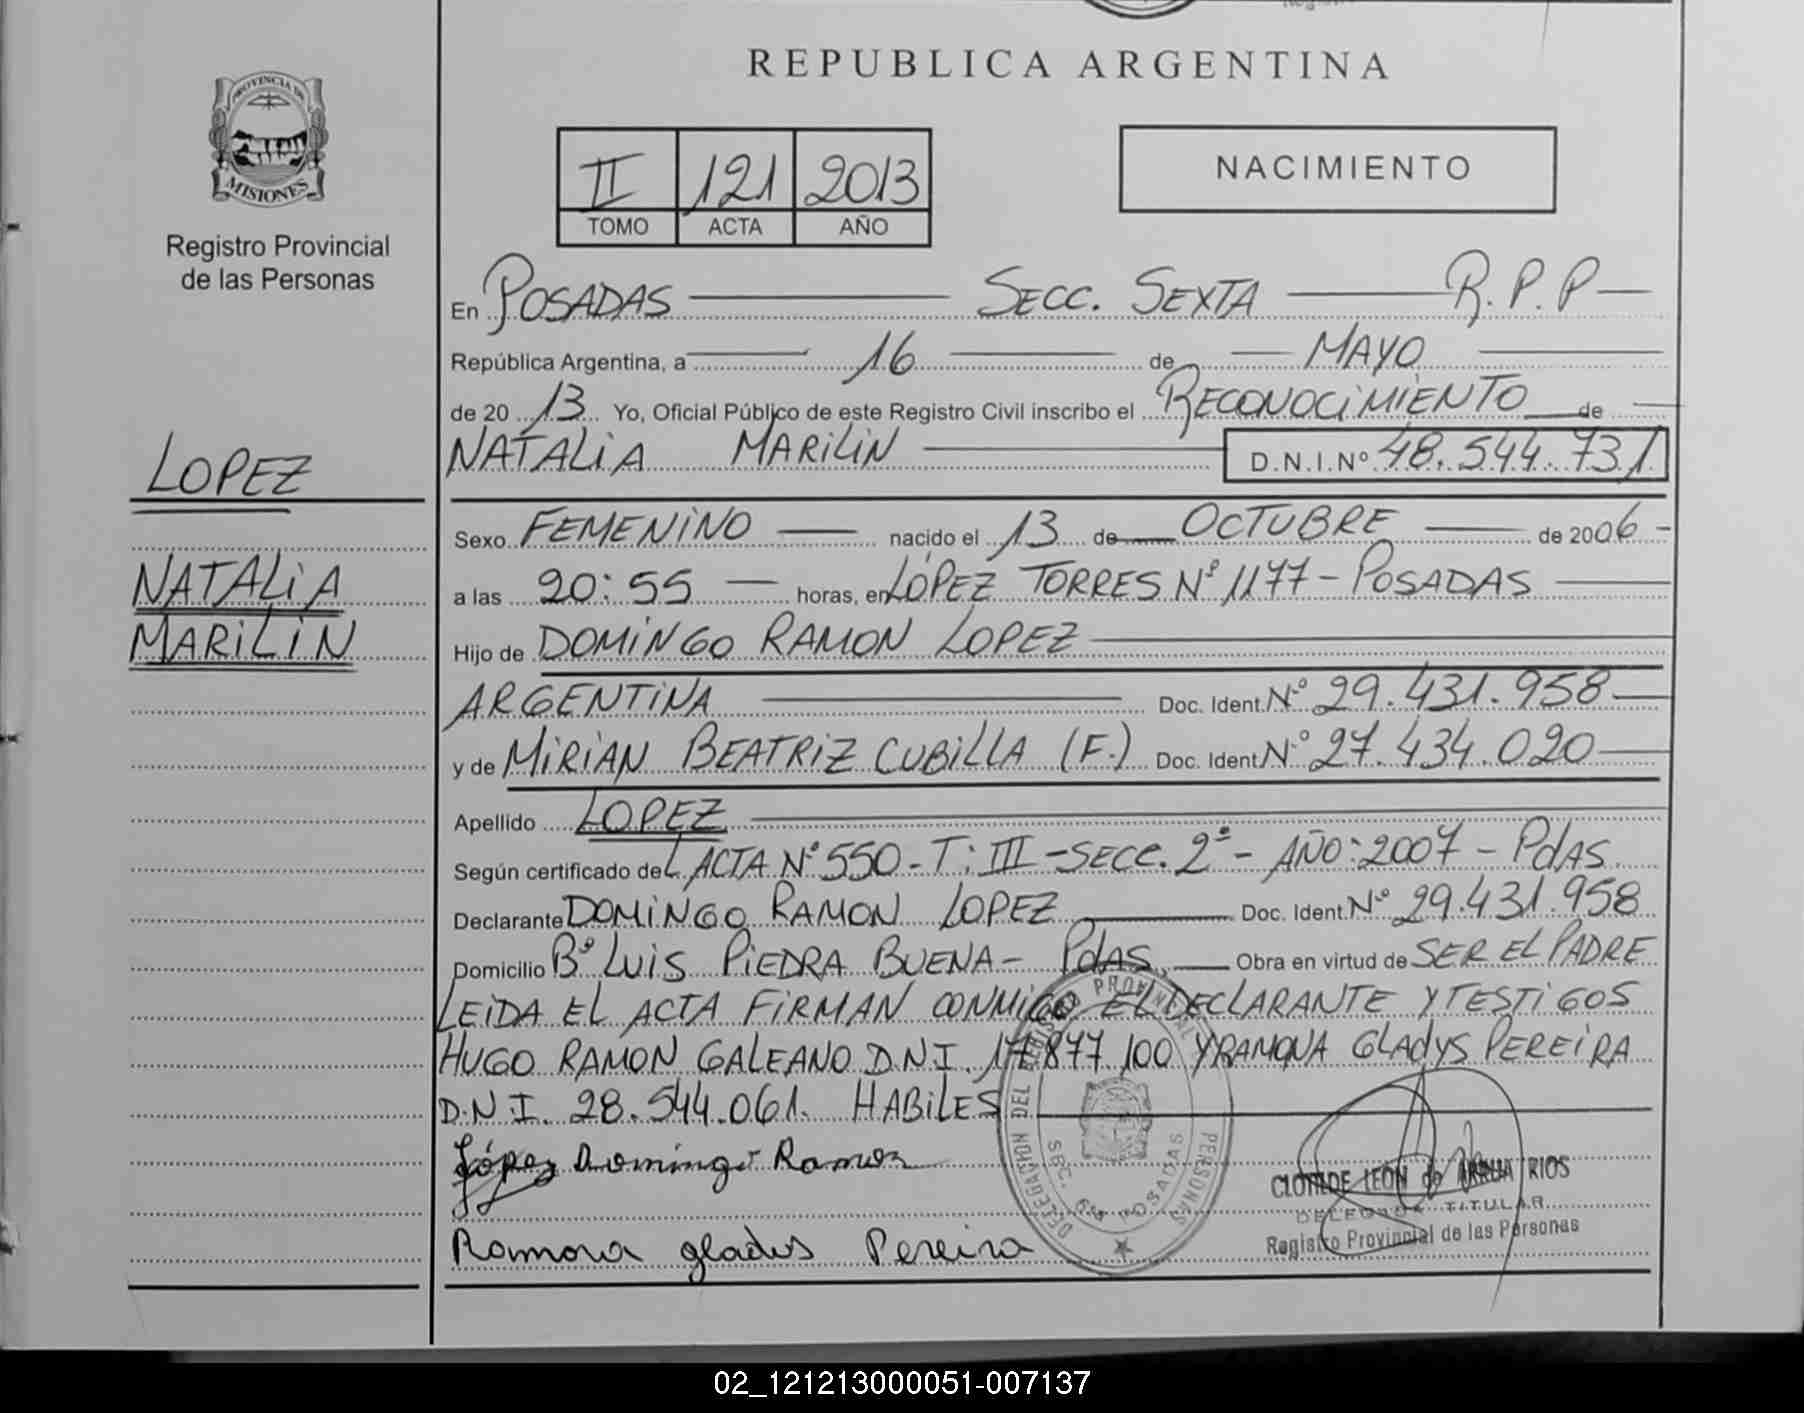 REPUBLICA ARGENTINA
PROVINCIA DE
MISIONES
Registro Provincial
de las Personas
II 121 2013
TOMO ACTA AÑO
NACIMIENTO
En POSADAS SECC. SEXTA R.P.P
República Argentina, a 16 de MAYO
de 20 13 Yo, Oficial Público de este Registro Civil inscribo el RECONOCIMIENTO de
NATALIA MARILIN D.N.I.Nº 48.544.731
LOPEZ
NATALIA
MARILIN
Sexo FEMENINO nacido el 13 de OCTUBRE de 2006
a las 20:55 horas, en LÓPEZ TORRES Nº 1177 - POSADAS
Hijo de DOMINGO RAMON LOPEZ
ARGENTINA Doc. Ident. Nº 29.431.958
y de MIRIAN BEATRIZ CUBILLA (F.) Doc. Ident. Nº 27.434.020
Apellido LOPEZ
Según certificado de L ACTA Nº 550 - T: III - SECC. 2ª - AÑO: 2007 - PdAS
Declarante DOMINGO RAMON LOPEZ Doc. Ident. Nº 29.431.958
Domicilio Bº LUIS PIEDRA BUENA - PdAS, Obra en virtud de SER EL PADRE
LEIDA EL ACTA FIRMAN CONMIGO EL DECLARANTE Y TESTIGOS
HUGO RAMON GALEANO D.N.I. 17.877.100 Y RAMONA GLADYS PEREIRA
D.N.I. 28.544.061. HABILES
López Domingo Ramon
Ramona gladus Pereira
CLOTILDE LEON de RIOS
DELEGADA TITULAR
Registro Provincial de las Personas
02_121213000051-007137